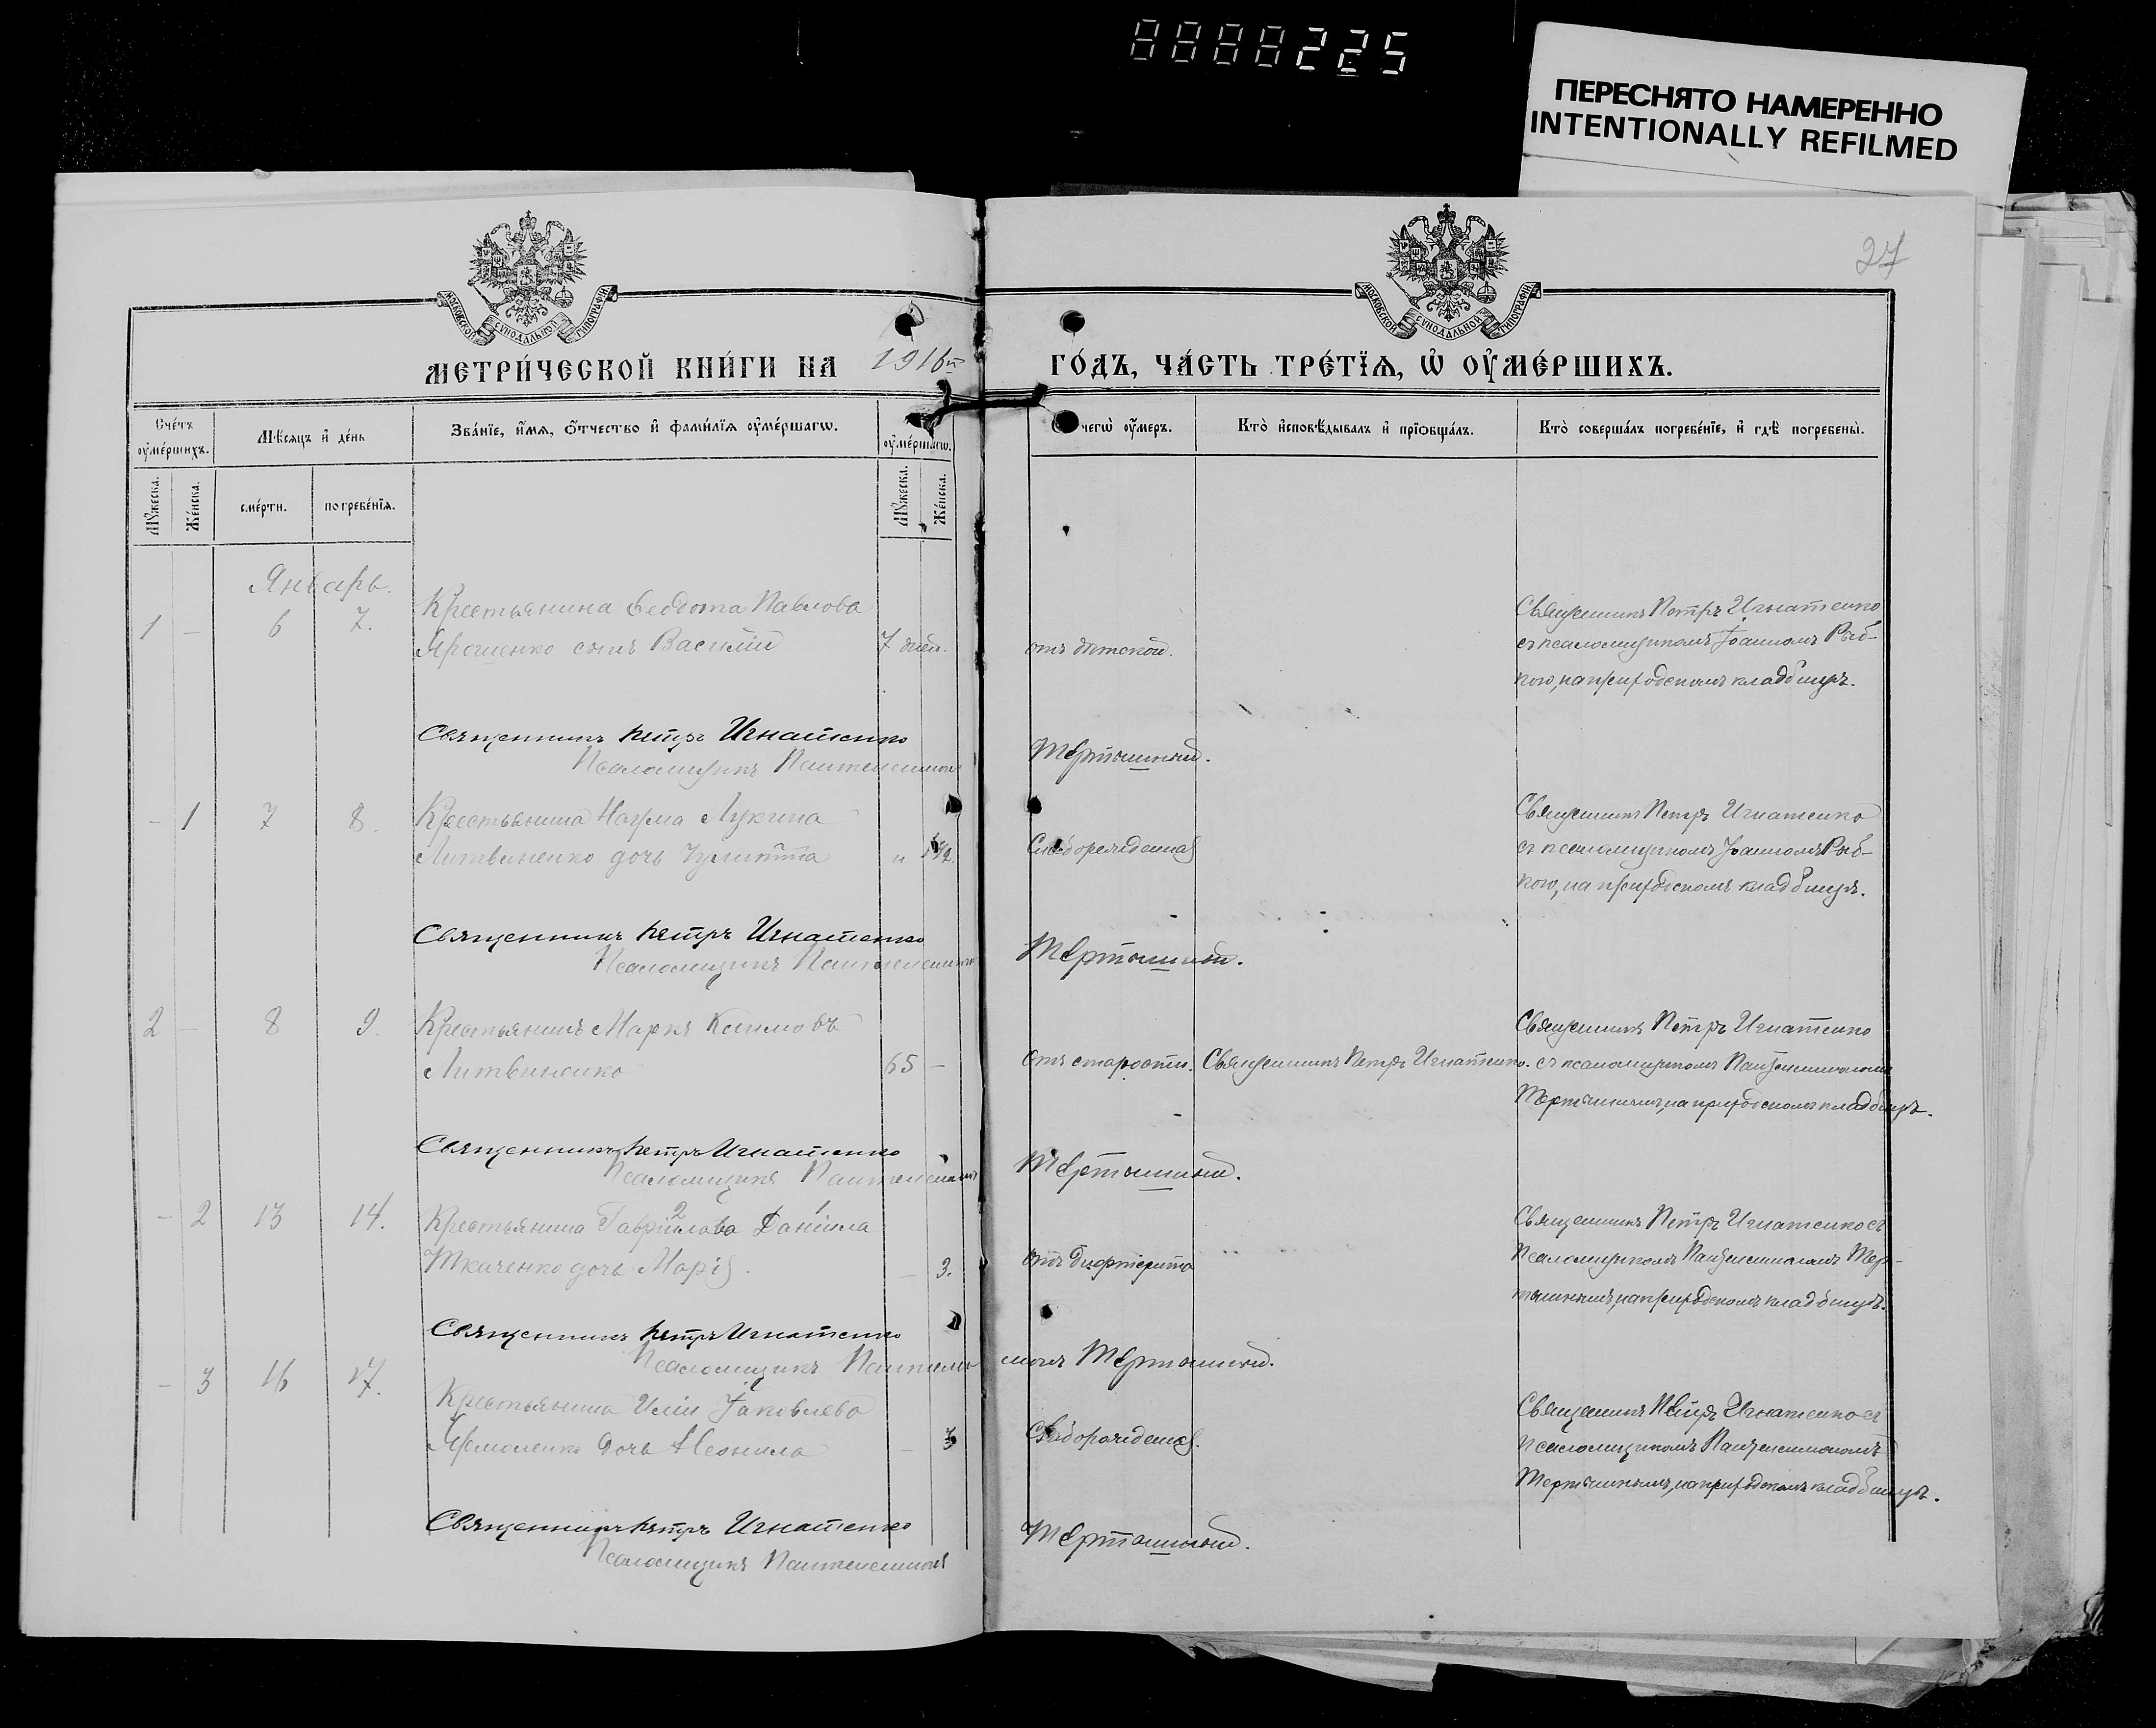 0000225
ПЕРЕСНЯТО НАМЕРЕННО
INTENTIONALLY REFILMED
27
МОСКОВСКОЙ СѴНОДАЛЬНОЙ ТИПОГРАФІИ
МОСКОВСКОЙ СѴНОДАЛЬНОЙ ТИПОГРАФІИ
МЕТРИ́ЧЕСКОЙ КНИ́ГИ НА 1916й ГО́ДЪ, ЧА́СТЬ ТРЕ́ТЇѦ, Ѡ҆ ОУ҆МЕ́РШИХЪ.
Сче́тъ оу҆ме́ршихъ.
Мѣ́сѧцъ и҆ де́нь
Зва́нїе, и҆́мѧ, ѻ҆́тчество и҆ фами́лїѧ оу҆ме́ршагѡ.
оу҆ме́ршагѡ.
чегѡ̀ оу҆́меръ.
Кто̀ и҆сповѣ́дывалъ и҆ прїѡбща́лъ.
Кто̀ соверша́лъ погребе́нїе, и҆ гдѣ̀ погребены̀.
Мꙋ́жеска.
Же́нска.
сме́рти.
погребе́нїѧ.
Мꙋ́жеска.
Же́нска.
Январь.
1 - 6 7. Крестьянина Ѳеодота Павлова
Ярошенко сынъ Василій 7 дней. отъ дѣтской.
Священникъ Петръ Игнатенко
съ псаломщикомъ Іоанномъ Рыб-
кою, на приходскомъ кладбищѣ.
Священникъ Петръ Игнатенко
Псаломщикъ Пантелеимонъ Тертышный.
- 1 7 8. Крестьянина Наума Лукина
Литвиненко дочь Іулитта Слаборожденная
Священникъ Петръ Игнатенко
съ псаломщикомъ Іоанномъ Рыб-
кою, на приходскомъ кладбищѣ.
Священникъ Петръ Игнатенко
Псаломщикъ Пантелеимонъ Тертышный.
2 - 8 9. Крестьянинъ Маркъ
Литвиненко 65 - Отъ старости. Священникъ Петръ Игнатенко.
Священникъ Петръ Игнатенко
съ псаломщикомъ Пантелеимономъ
Тертышнымъ, на приходскомъ кладбищѣ.
Священникъ Петръ Игнатенко
Псаломщикъ Пантелеимонъ Тертышный.
- 2 13 14. Крестьянина Гавріилова 2 Даніила 1
Ткаченко дочь Марія. - 3. Отъ дифтерита
Священникъ Петръ Игнатенко съ
псаломщикомъ Пантелеимономъ Тер-
тышнымъ, на приходскомъ кладбищѣ.
Священникъ Петръ Игнатенко
Псаломщикъ Пантелеимонъ Тертышный.
- 3 16 17. Крестьянина Иліи Іаковлева
Ярмоленко дочь Неонила - Слаборожденая.
Священникъ Петръ Игнатенко съ
псаломщикомъ Пантелеимономъ
Тертышнымъ, на приходскомъ кладбищѣ.
Священникъ Петръ Игнатенко
Псаломщикъ Пантелеимонъ Тертышный.